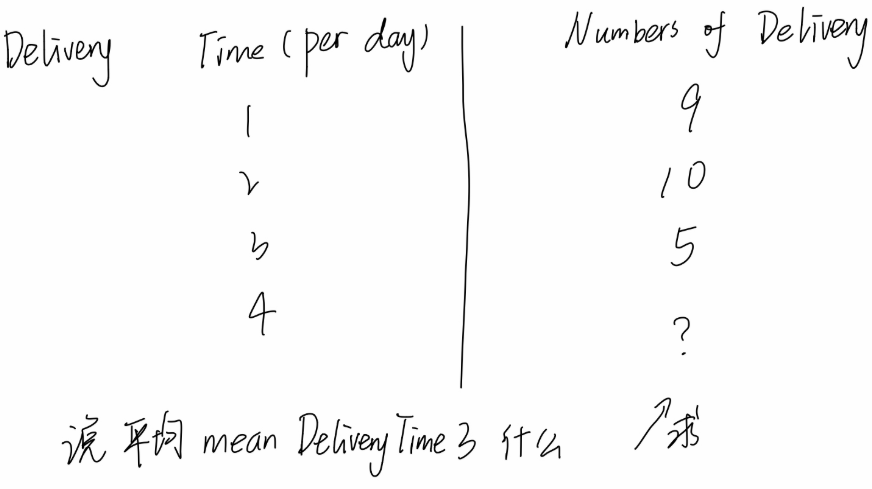 Delivery Time (per day) Numbers of Delivery
1 9
2 10
3 5
4 ?
说 平均 mean Delivery Time 3 什么 ↗求